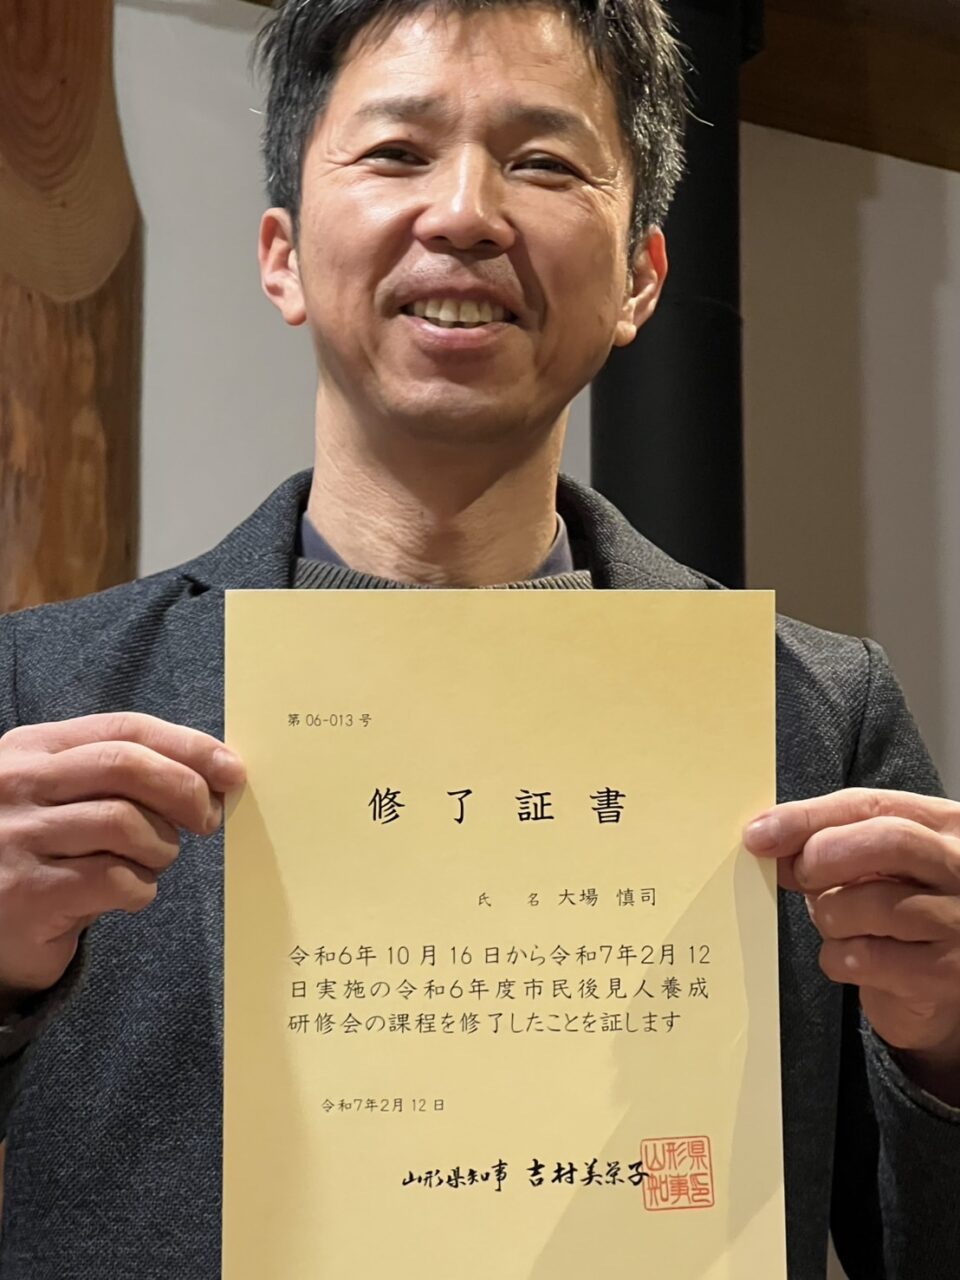 第 06-013 号
修了証書
氏 名 大場 慎司
令和6年 10 月 16 日から令和7年2月 12
日実施の令和6年度市民後見人養成
研修会の課程を修了したことを証します
令和7年2月 12 日
山形県知事 吉村美栄子
山形県
知事印